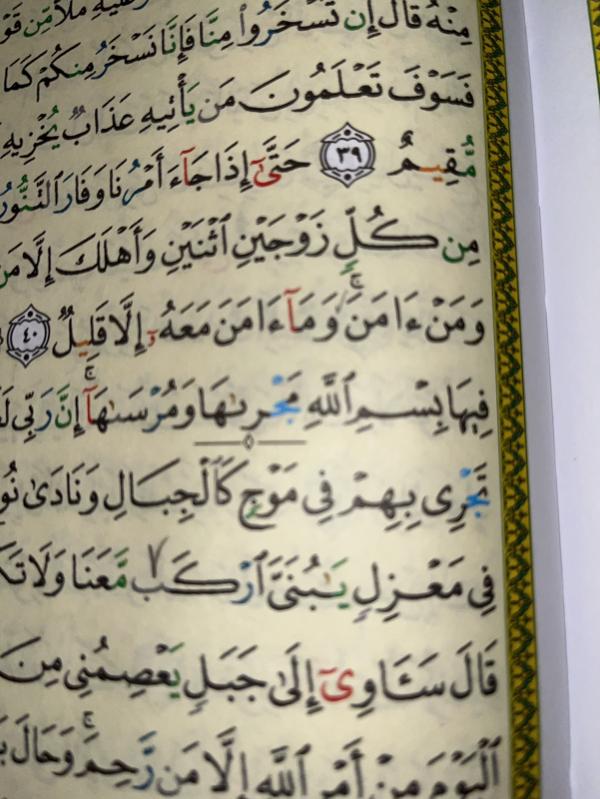 مِنْهُ قَالَ إِن تَسْخَرُوا۟ مِنَّا فَإِنَّا نَسْخَرُ مِنكُمْ كَمَا
فَسَوْفَ تَعْلَمُونَ مَن يَأْتِيهِ عَذَابٌ يُخْزِيهِ
مُّقِيمٌ ٣٩ حَتَّىٰٓ إِذَا جَآءَ أَمْرُنَا وَفَارَ ٱلتَّنُّورُ
مِن كُلٍّ زَوْجَيْنِ ٱثْنَيْنِ وَأَهْلَكَ إِلَّا مَن
وَمَنْ ءَامَنَ ۚ وَمَآ ءَامَنَ مَعَهُۥٓ إِلَّا قَلِيلٌ ٤٠
فِيهَا بِسْمِ ٱللَّهِ مَجْر۪ىٰهَا وَمُرْسَىٰهَآ ۚ إِنَّ رَبِّى
تَجْرِى بِهِمْ فِى مَوْجٍ كَٱلْجِبَالِ وَنَادَىٰ
فِى مَعْزِلٍ يَـٰبُنَىَّ ٱرْكَب مَّعَنَا وَلَا
قَالَ سَـَٔاوِىٓ إِلَىٰ جَبَلٍ يَعْصِمُنِى مِنَ
ٱلْيَوْمَ مِنْ أَمْرِ ٱللَّهِ إِلَّا مَن رَّحِمَ ۚ وَحَالَ